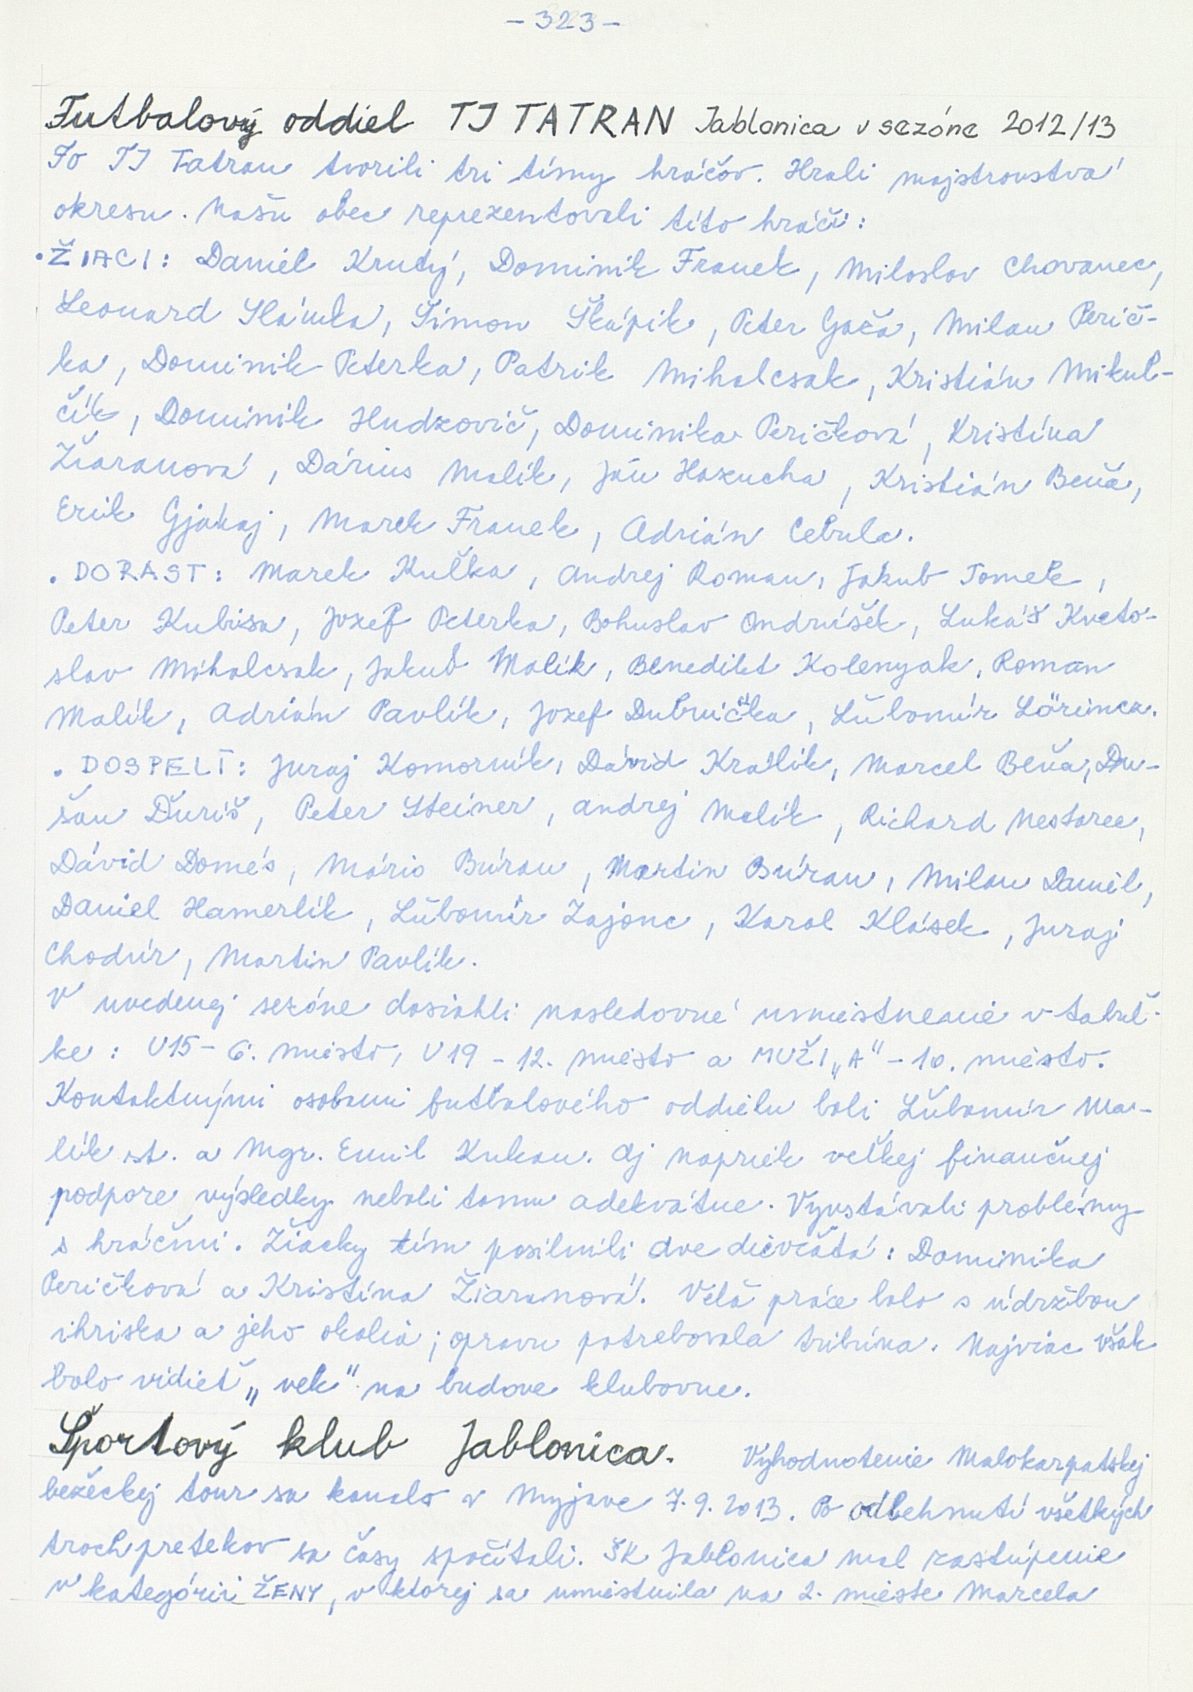 - 323 -
Futbalový oddiel TJ TATRAN Jablonica v sezóne 2012/13
Po TJ Tatran tvorili tri tímy hráčov. Hrali majstrovstvá
okresu. Našu obec reprezentovali títo hráči:
• ŽIACI: Daniel Krutý, Dominik Franek, Miloslav Chovanec,
Leonard Slámka, Šimon Škápik, Peter Gača, Milan Perič-
ka, Dominik Peterka, Patrik Mihalcsak, Kristián Mikul-
čík, Dominik Hudzovič, Dominika Peričková, Kristína
Žiaranová, Dárius Malík, Ján Hazucha, Kristián Beňa,
Erik Gjakaj, Marek Franek, Adrián Cebula.
• DORAST: Marek Kuška, Andrej Roman, Jakub Tomek,
Peter Kubisa, Jozef Peterka, Bohuslav Ondrúšek, Lukáš Kveto-
slav Mihalcsak, Jakub Malík, Benedikt Kolenyak, Roman
Malík, Adrián Pavlík, Jozef Dubnička, Ľubomír Lörincz.
• DOSPELÍ: Juraj Komorník, Dávid Králik, Marcel Beňa, Du-
šan Ďuriš, Peter Steiner, Andrej Malík, Richard Nestarec,
Dávid Domés, Mário Búran, Martin Búran, Milan Daniel,
Daniel Hamerlík, Ľubomír Zajonc, Karol Klásek, Juraj
Chodúr, Martin Pavlík.
V uvedenej sezóne dosiahli nasledovné umiestnenie v tabuľ-
ke: U15 - 6. miesto, U19 - 12. miesto a MUŽI „A" - 10. miesto.
Kontaktnými osobami futbalového oddielu boli Ľubomír Ma-
lík st. a Mgr. Emil Kukan. Aj napriek veľkej finančnej
podpore výsledky neboli tomu adekvátne. Vyvstávali problémy
s hráčmi. Žiacky tím posilnili dve dievčatá: Dominika
Peričková a Kristína Žiaranová. Veľa práce bolo s údržbou
ihriska a jeho okolia; opravu potrebovala tribúna. Najviac však
bolo vidieť „vek" na budove klubovne.
Športový klub Jablonica. Vyhodnotenie Malokarpatskej
bežeckej tour sa konalo v Myjave 7.9.2013. Po odbehnutí všetkých
troch pretekov sa časy spočítali. ŠK Jablonica mal zastúpenie
v kategórii ŽENY, v ktorej sa umiestnila na 2. mieste Marcela